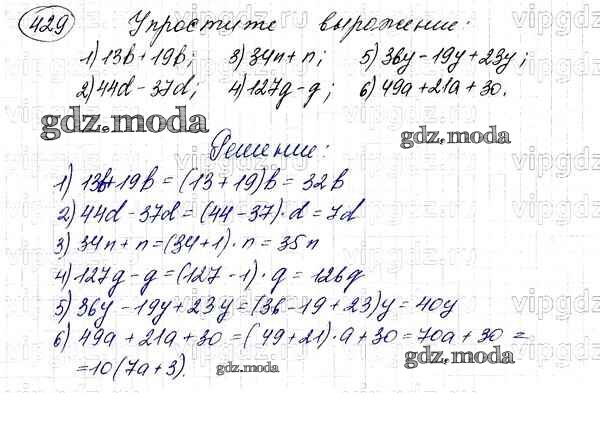 429 Упростите выражение:
1) 13b + 19b; 3) 34n + n; 5) 36y - 19y + 23y;
2) 44d - 37d; 4) 127g - g; 6) 49a + 21a + 30.
gdz.moda gdz.moda
Решение:
1) 13b + 19b = (13 + 19)b = 32b
2) 44d - 37d = (44 - 37)·d = 7d
3) 34n + n = (34 + 1)·n = 35n
4) 127g - g = (127 - 1)·g = 126g
5) 36y - 19y + 23y = (36 - 19 + 23)y = 40y
6) 49a + 21a + 30 = (49 + 21)·a + 30 = 70a + 30 =
= 10(7a + 3).
gdz.moda gdz.moda